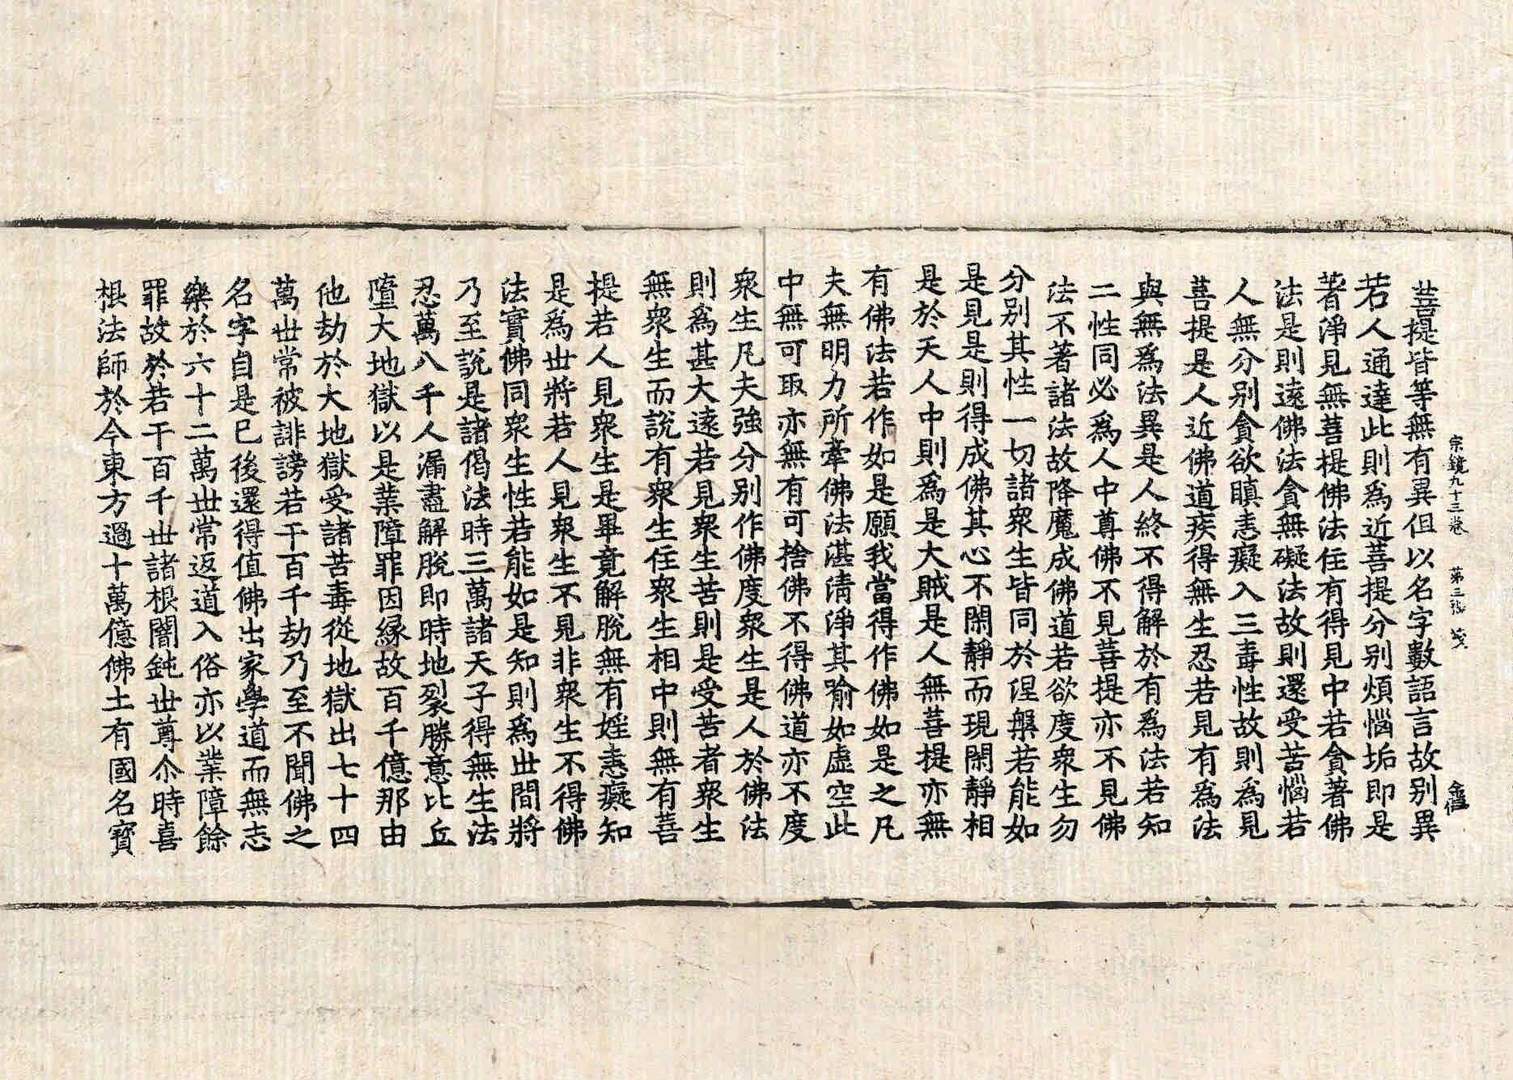 宗鏡九十三卷 第三張
菩提皆等無有異但以名字數語言故别異
若人通達此則為近菩提分别煩惱垢即是
著淨見無菩提佛法住有得見中若貪著佛
法是則遠佛法貪無礙法故則還受苦惱若
人無分别貪欲瞋恚癡入三毒性故則為見
菩提是人近佛道疾得無生忍若見有為法
與無為法異是人終不得解於有為法若知
二性同必為人中尊佛不見菩提亦不見佛
法不著諸法故降魔成佛道若欲度衆生勿
分别其性一切諸衆生皆同於涅槃若能如
是見是則得成佛其心不閑靜而現閑靜相
是於天人中則為是大賊是人無菩提亦無
有佛法若作如是願我當得作佛如是之凡
夫無明力所牽佛法湛清淨其喻如虛空此
中無可取亦無有可捨佛不得佛道亦不度
衆生凡夫強分别作佛度衆生是人於佛法
則為甚大遠若見衆生苦則是受苦者衆生
無衆生而說有衆生住衆生相中則無有菩
提若人見衆生是畢竟解脫無有婬恚癡知
是為世將若人見衆生不見非衆生不得佛
法實佛同衆生性若能如是知則為世間將
乃至說是諸偈法時三萬諸天子得無生法
忍萬八千人漏盡解脫即時地裂勝意比丘
墮大地獄以是業障罪因緣故百千億那由
他劫於大地獄受諸苦毒從地獄出七十四
萬世常被誹謗若干百千劫乃至不聞佛之
名字自是已後還得值佛出家學道而無志
樂於六十二萬世常返道入俗亦以業障餘
罪故於若干百千世諸根闇鈍世尊尒時喜
根法師於今東方過十萬億佛土有國名寶